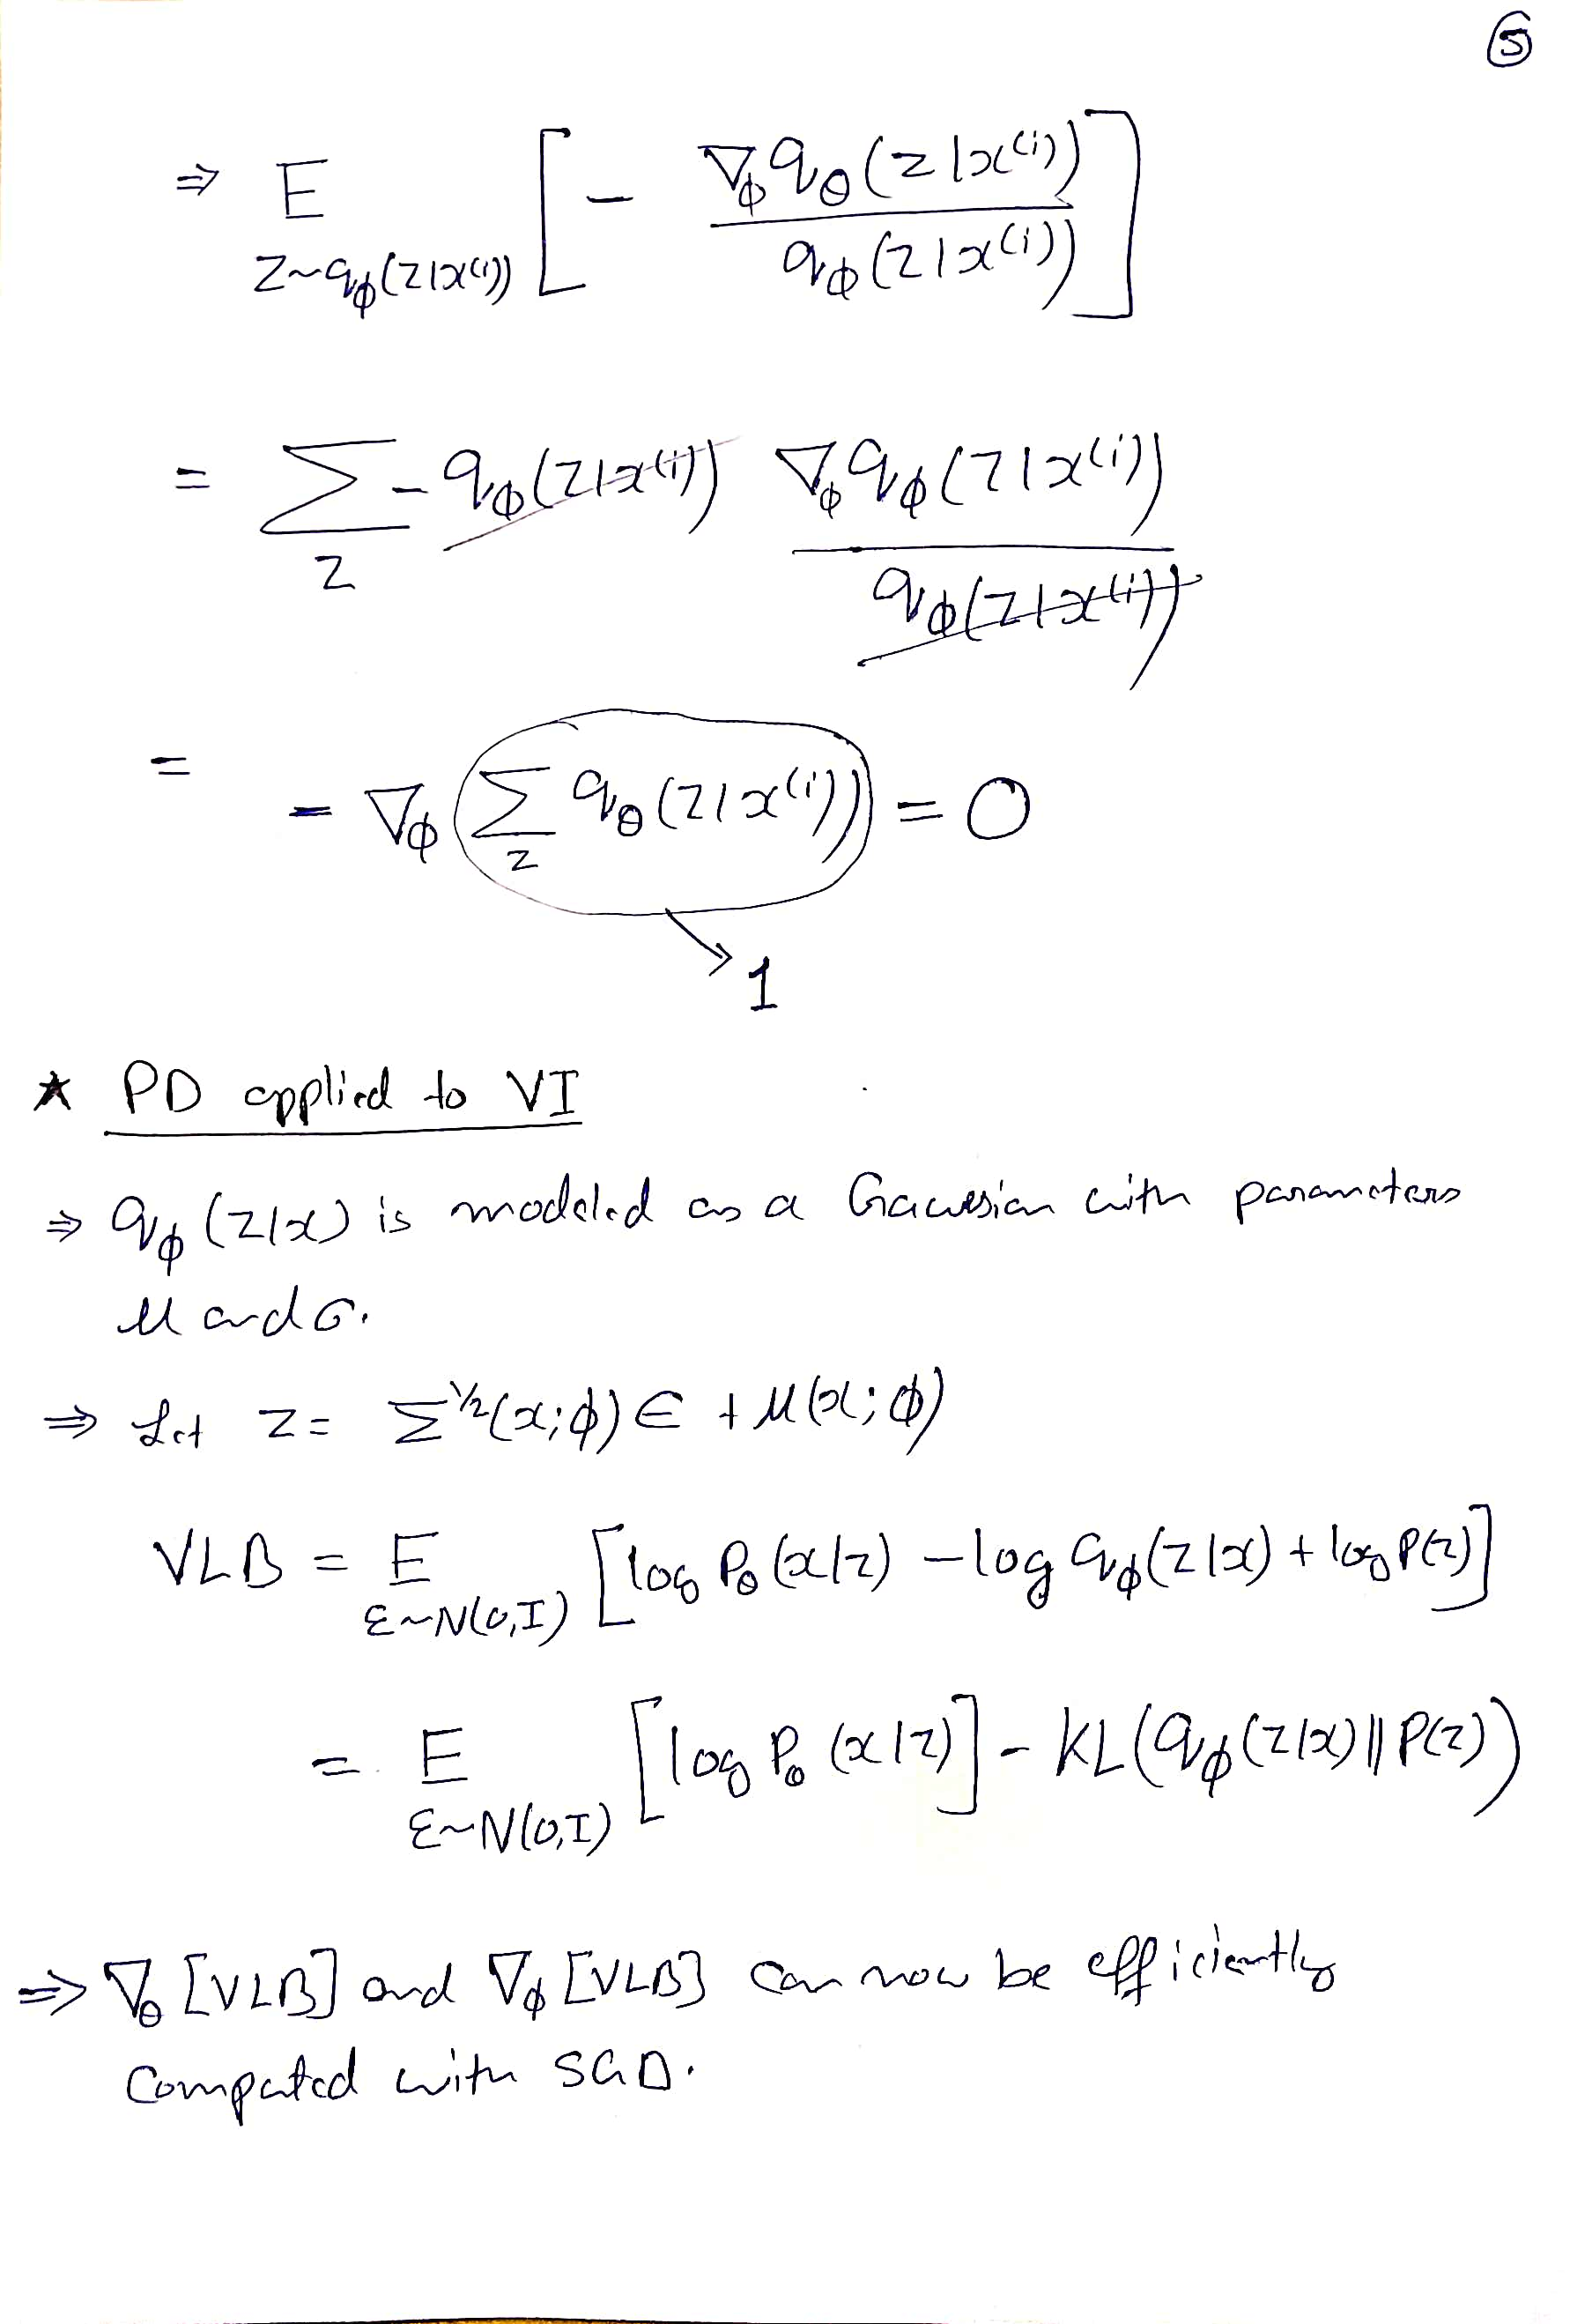 ⑤
⇒ E_{z~q_ϕ(z|x^{(i)})} [ - ∇_ϕ q_θ(z|x^{(i)}) / q_ϕ(z|x^{(i)}) ]
= Σ_z - q_ϕ(z|x^{(i)}) ∇_ϕ q_ϕ(z|x^{(i)}) / q_ϕ(z|x^{(i)})
= - ∇_ϕ (Σ_z q_θ(z|x^{(i)})) = 0
→ 1
* PD applied to VI
⇒ q_ϕ(z|x) is modeled as a Gaussian with parameters
μ and σ.
⇒ Let z = Σ^{1/2}(x;ϕ) ∈ + μ(x;ϕ)
VLB = E_{ε~N(0,I)} [log P_θ(x|z) - log q_ϕ(z|x) + log P(z)]
= E_{ε~N(0,I)} [log P_θ(x|z)] - KL(q_ϕ(z|x) || P(z))
⇒ ∇_θ [VLB] and ∇_ϕ [VLB] can now be efficiently
computed with SGD.